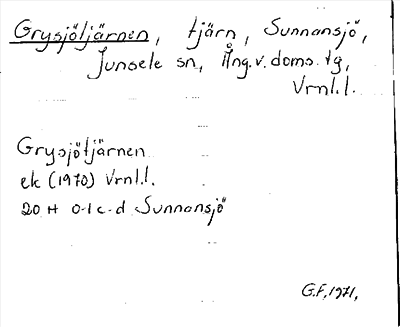 Grysjötjärnen, tjärn, Sunnansjö,
Junsele sn, Ång.v.doms.tg,
Vrnl.l.
Grysjötjärnen
ek (1970) Vrnl.l.
20 H 0-1 c-d Sunnansjö
G.F, 1971,